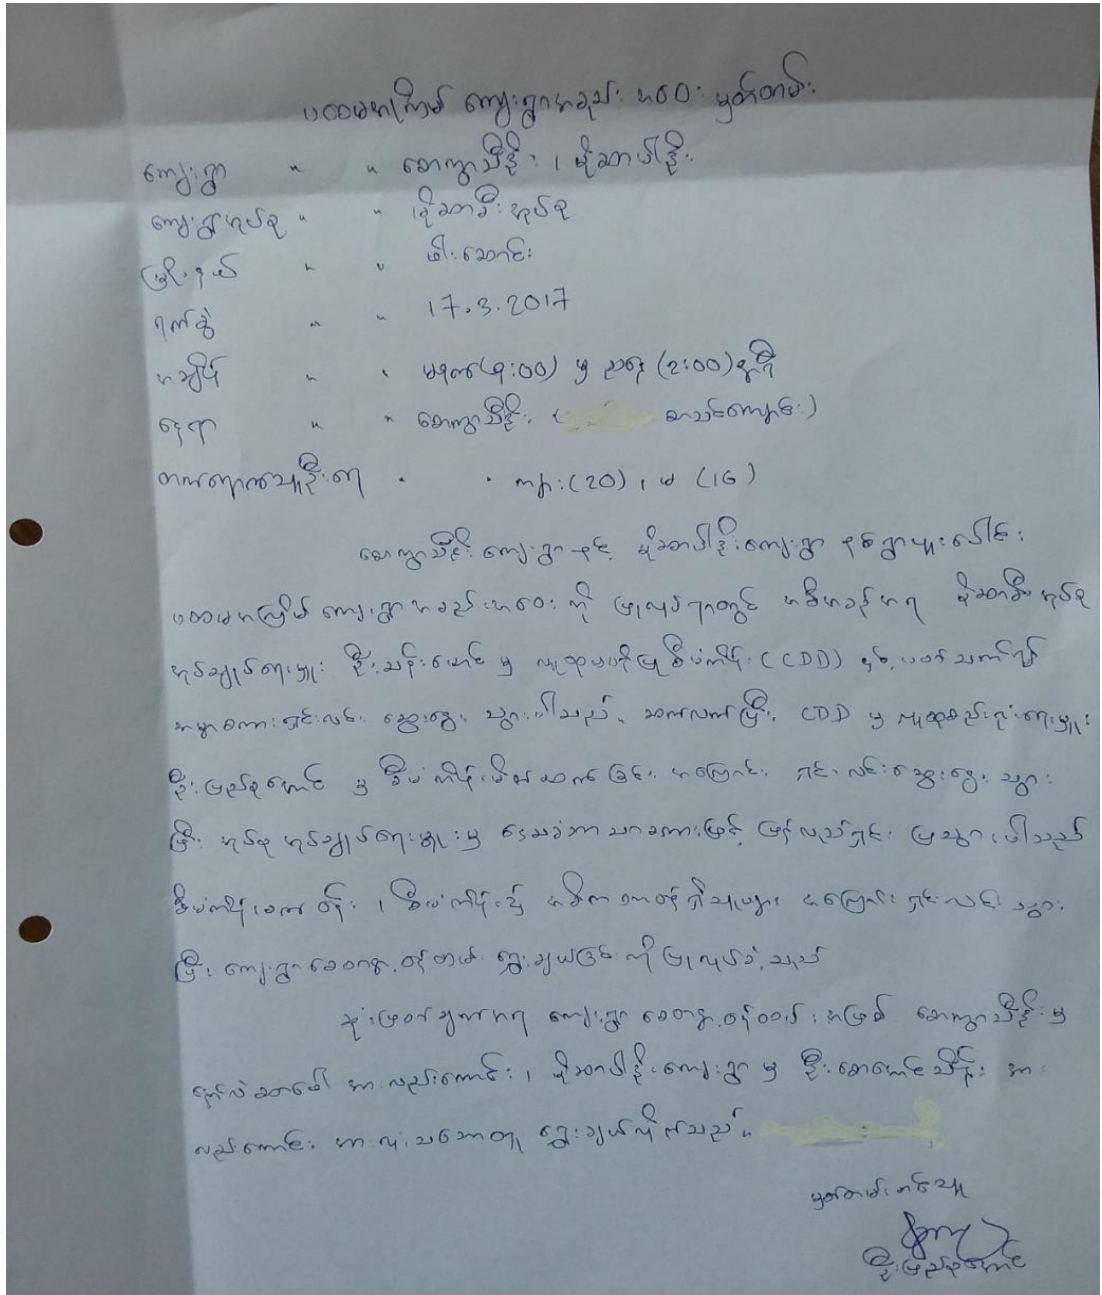 ပထမအကြိမ် ကျေးရွာအစည်းအဝေး မှတ်တမ်း
ကျေးရွာ " " ဆောကွာသီဒိုး ၊ မိုဆာပါဒိုး
ကျေးရွာအုပ်စု " " မိုဆာခီးအုပ်စု
မြို့နယ် " " ဖါးဆောင်း
ရက်စွဲ " " 17.3.2017
အချိန် " " မနက်(9:00) မှ ညနေ (2:00) နာရီ
နေရာ " " ဆောကွာသီဒိုး ( စာသင်ကျောင်း)
တက်ရောက်သူဦးရေ " " ကျား(20) ၊ မ (16)
ဆောကွာသီဒိုး ကျေးရွာ နှင့် မိုဆာပါဒိုးကျေးရွာ နှစ်ရွာပူးပေါင်း
ပထမအကြိမ် ကျေးရွာအစည်းအဝေး ကို ပြုလုပ်ရာတွင် အစီအစဉ်အရ မိုဆာခီးအုပ်စု
အုပ်ချုပ်ရေးမှူး ဦးသန်းအောင် မှ လူထုဗဟိုပြုစီမံကိန်း (CDD) နှင့် ပတ်သက်၍
အမှာစကား ရှင်းလင်း ဆွေးနွေး သွားပါသည်။ ဆက်လက်ပြီး CDD မှ လူထုစည်းရုံးရေးမှူး
ဦးပြည့်စုံအောင် မှ စီမံကိန်းမိတ်ဆက်ခြင်း အကြောင်း ရှင်းလင်းဆွေးနွေး သွား
ပြီး အုပ်စု အုပ်ချုပ်ရေးမှူးမှ ဒေသခံဘာသာစကားဖြင့် ပြန်လည်ရှင်း ပြသွားပါသည်
စီမံကိန်းစက်ဝန်း ၊ စီမံကိန်း၌ အဓိက တာဝန်ရှိသူများ အကြောင်း ရှင်းလင်း သွား
ပြီး ကျေးရွာစေတနာ့ဝန်ထမ်း ရွေးချယ်ခြင်းကို ပြုလုပ်ခဲ့သည်
ဆုံးဖြတ်ချက်အရ ကျေးရွာ စေတနာ့ဝန်ထမ်း အဖြစ် ဆောကွာသီဒိုးမှ
အား လည်းကောင်း ၊ မိုဆာပါဒိုးကျေးရွာ မှ ဦးစောအောင်သိန်း အား
လည်းကောင်း အားလုံးသဘောတူ ရွေးချယ်လိုက်သည်။
မှတ်တမ်းတင်သူ
ဦးပြည့်စုံအောင်